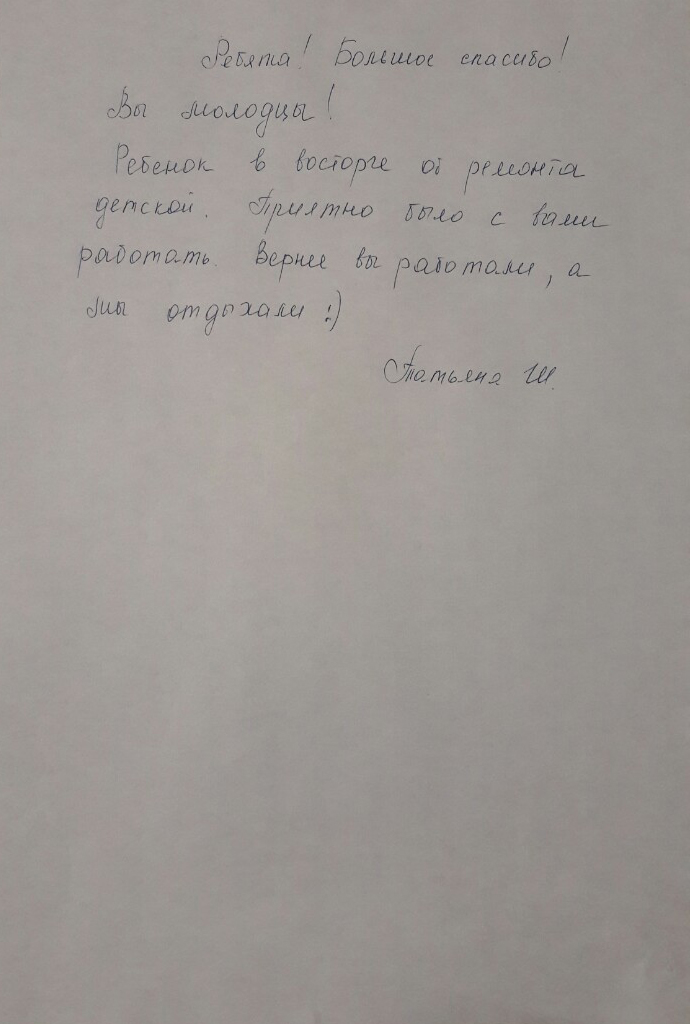 Ребята! Большое спасибо!
Вы молодцы!
Ребенок в восторге от ремонта
детской. Приятно было с вами
работать. Вернее вы работали, а
мы отдыхали :)
Татьяна Ш.